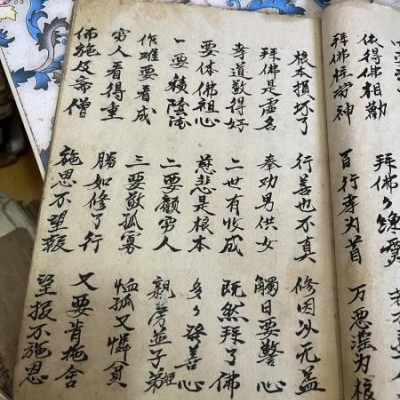 依得佛相勸 拜佛々
拜佛 神 百行孝为首 万恶滛为根
根本損坏了 行善也不真 修因以无益
拜佛是虚名 奉劝男供女 觸目要警心
孝道敬得好 二世有收成 既然拜了佛
要体佛祖心 慈悲是根本 多々發善心
一要積陰德 二要顧穷人 親房並子
作难要看成 三要敬孤寡 恤孤又憐貧
穷人看得重 勝如修了行 又要肯施舍
佛施及斋僧 施恩不望報 望报不施恩